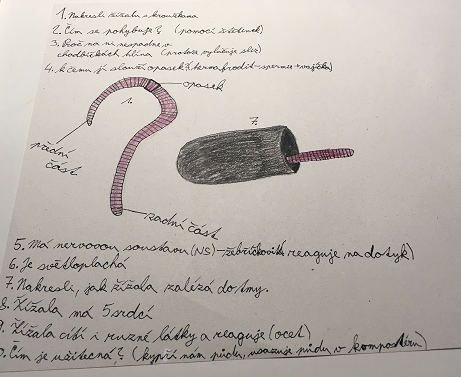 1. Nakresli žížalu s kroužkama
2. Čím se pohybuje? (pomocí štětinek)
3. Proč na ní nespadne v
chodbičkách hlína (protože vylučuje sliz)
4. k čemu jí slouží opasek? (hermafrodit - spermie + vajíčka)
opasek
1.
přední
část
7.
zadní část
5. Má nervovou soustavu (NS) - žebříčkovitá reaguje na dotyk)
6. Je světloplachá
7. Nakresli, jak žížala zalézá do tmy.
8. Žížala má 5 srdcí
9. Žížala cítí i ruzné látky a reaguje (ocet)
0. Čím je užitečná? (kypří nám půdu, půdu v kompostéru)